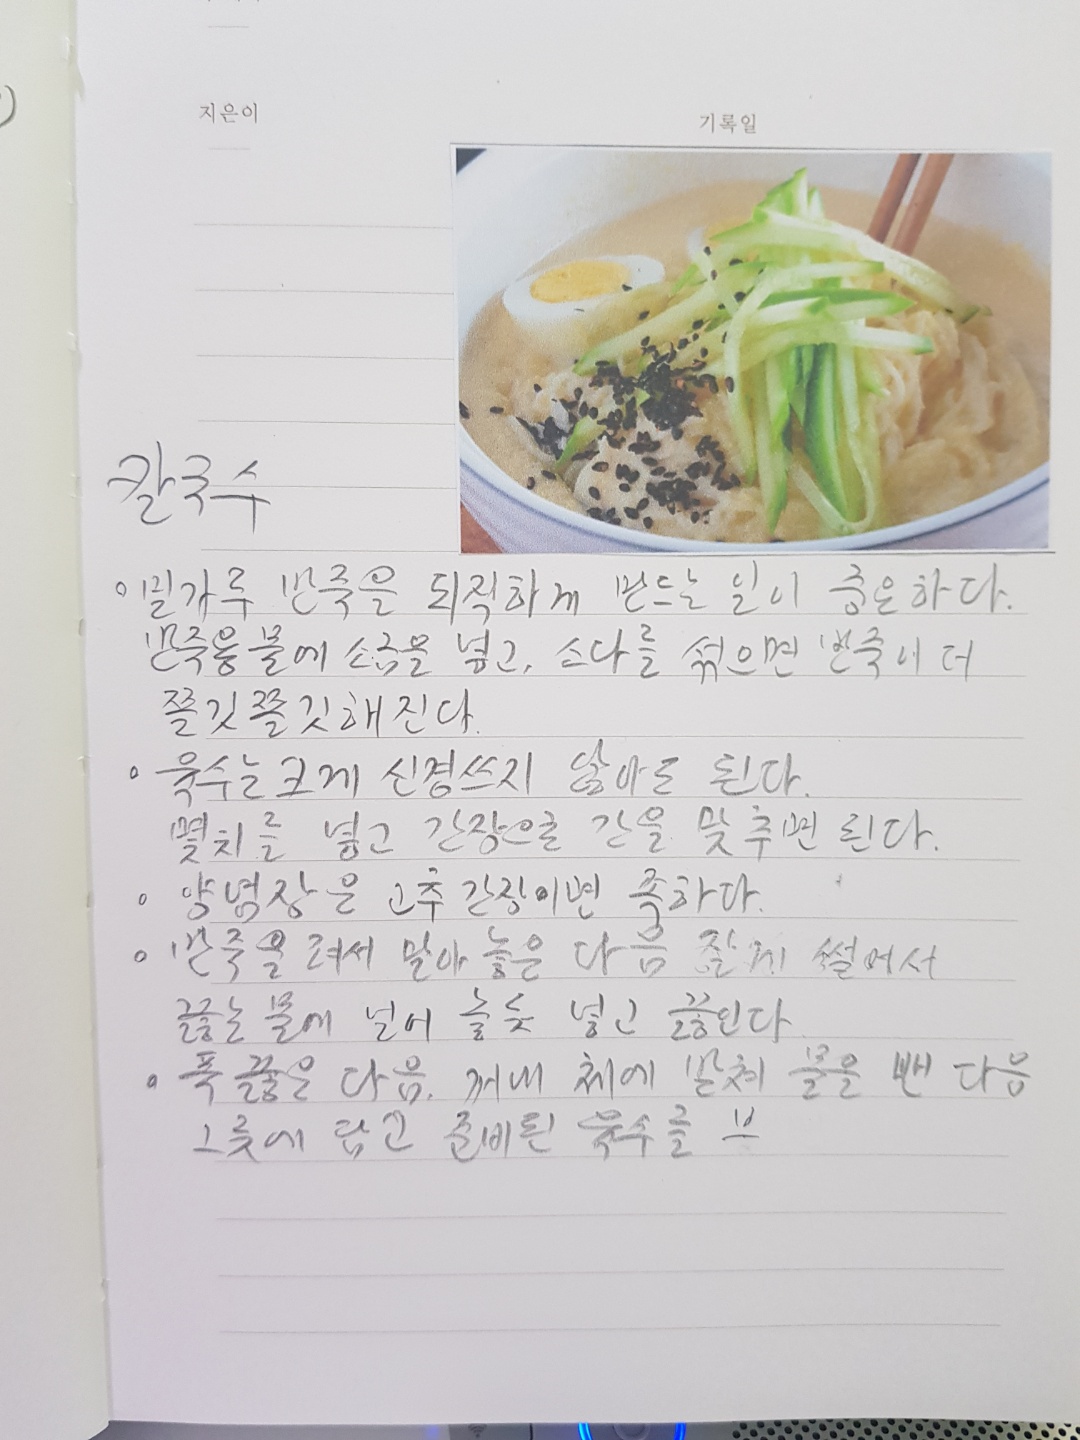 지은이
기록일
칼국수
밀가루 반죽을 되직하게 만드는 일이 중요하다.
반죽용 물에 소금을 넣고, 소다를 섞으면 반죽이 더
쫄깃쫄깃해진다.
육수는 크게 신경쓰지 않아도 된다.
멸치를 넣고 간장으로 간을 맞추면 된다.
양념장은 고추간장이면 족하다.
반죽을 펴서 말아 놓은 다음 잘게 썰어서
끓는 물에 널어 놓듯 넣고 끓인다
푹 끓은 다음, 꺼내 체에 받쳐 물을 뺀 다음
그릇에 담고 준비된 육수를 부